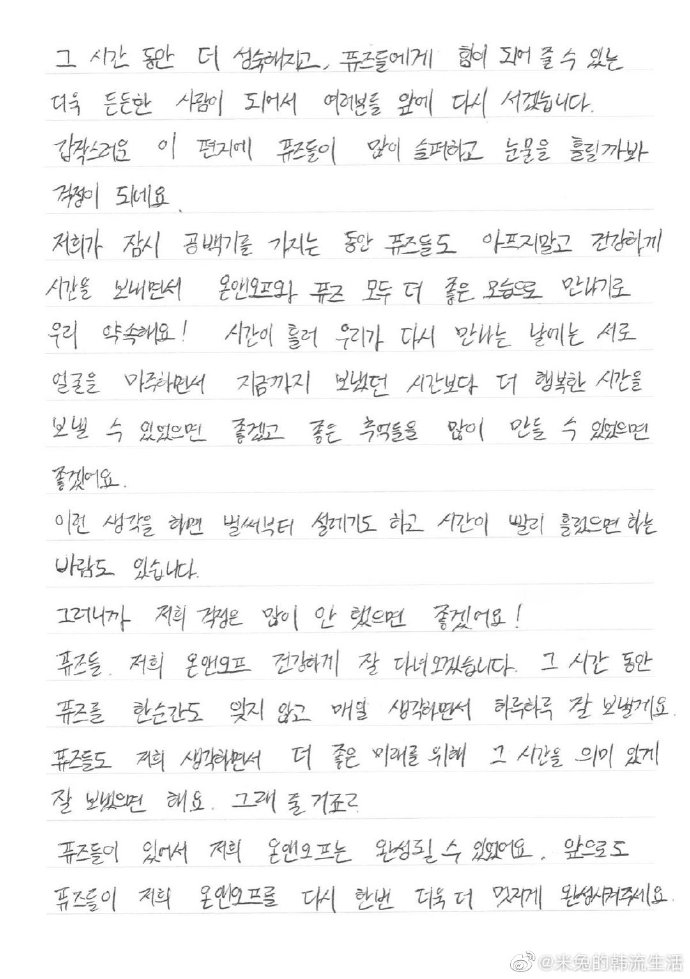 그 시간 동안 더 성숙해지고, 퓨즈들에게 힘이 되어 줄 수 있는
더욱 든든한 사람이 되어서 여러분들 앞에 다시 서겠습니다.
갑작스러운 이 편지에 퓨즈들이 많이 슬퍼하고 눈물을 흘릴까봐
걱정이 되네요.
저희가 잠시 공백기를 가지는 동안 퓨즈들도 아프지말고 건강하게
시간을 보내면서 온앤오프와 퓨즈 모두 더 좋은 모습으로 만나기로
우리 약속해요! 시간이 흘러 우리가 다시 만나는 날에는 서로
얼굴을 마주하면서 지금까지 보냈던 시간보다 더 행복한 시간을
보낼 수 있었으면 좋겠고 좋은 추억들을 많이 만들 수 있었으면
좋겠어요.
이런 생각을 하면 벌써부터 설레기도 하고 시간이 빨리 흘렀으면 하는
바람도 있습니다.
그러니까 저희 걱정은 많이 안 했으면 좋겠어요!
퓨즈들. 저희 온앤오프 건강하게 잘 다녀오겠습니다. 그 시간 동안
퓨즈를 한순간도 잊지 않고 매일 생각하면서 하루하루 잘 보낼게요.
퓨즈들도 저희 생각하면서 더 좋은 미래를 위해 그 시간을 의미 있게
잘 보냈으면 해요. 그래 줄 거죠?
퓨즈들이 있어서 저희 온앤오프는 완성될 수 있었어요. 앞으로도
퓨즈들이 저희 온앤오프를 다시 한번 더욱 더 멋지게 완성시켜주세요.
@米兔的韩流生活